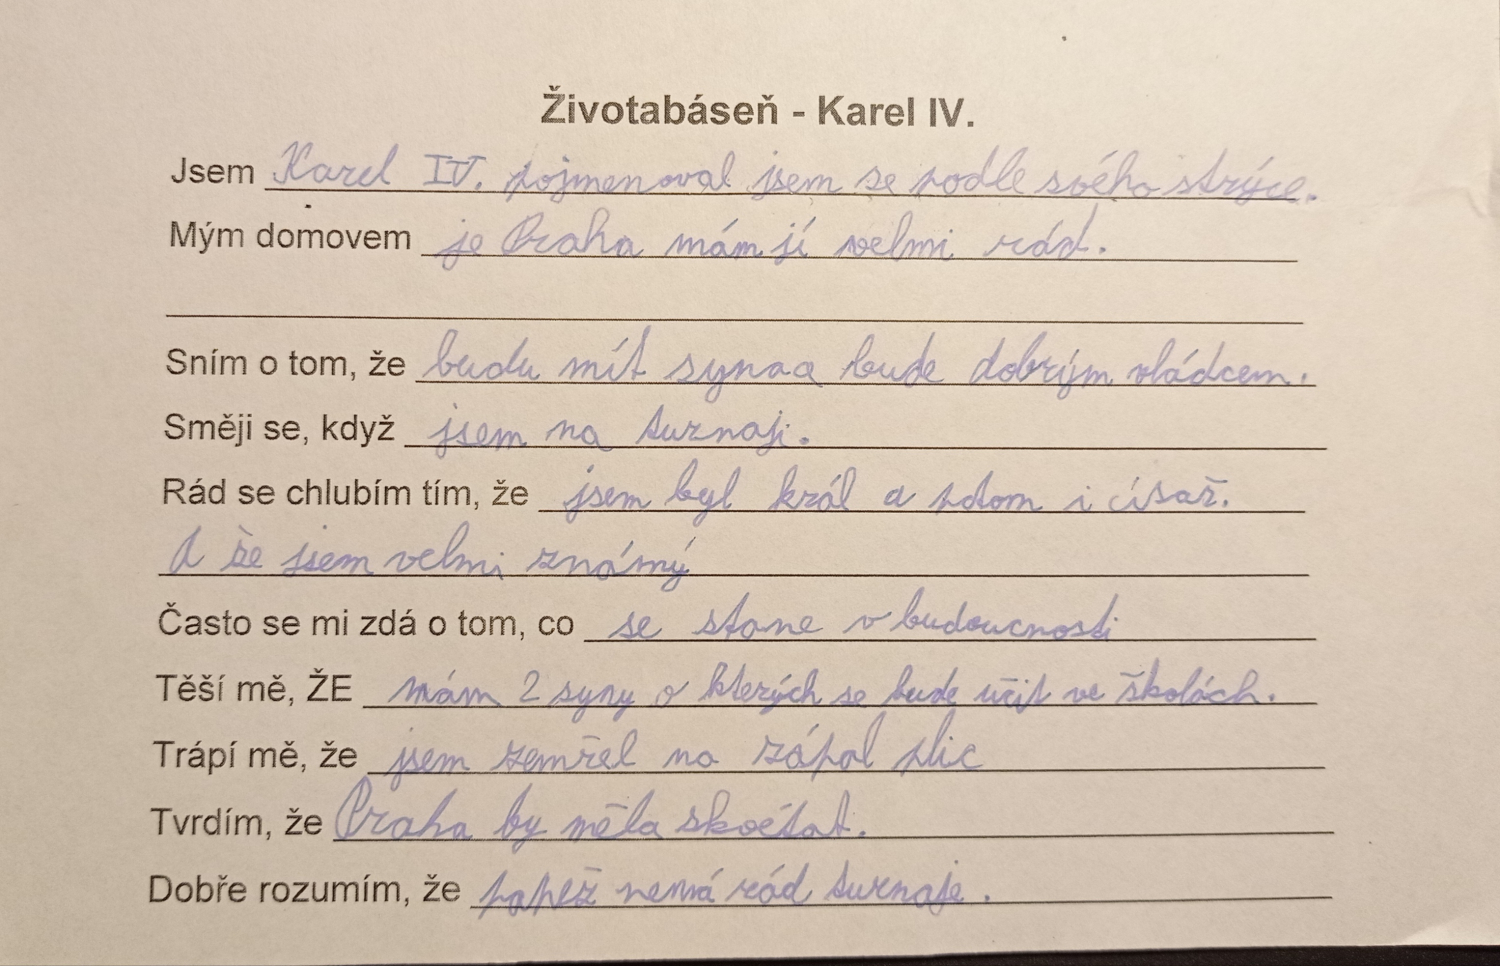 Životabáseň - Karel IV.
Jsem Karel IV. pojmenoval jsem se podle svého strýce.
Mým domovem je Praha mám jí velmi rád.
Sním o tom, že budu mít syna a bude dobrým vládcem.
Směji se, když jsem na turnaji.
Rád se chlubím tím, že jsem byl král a potom i císař.
A že jsem velmi známý
Často se mi zdá o tom, co se stane v budoucnosti
Těší mě, ŽE mám 2 syny o kterých se bude učit ve školách.
Trápí mě, že jsem zemřel na zápal plic
Tvrdím, že Praha by měla
Dobře rozumím, že papež nemá rád turnaje.